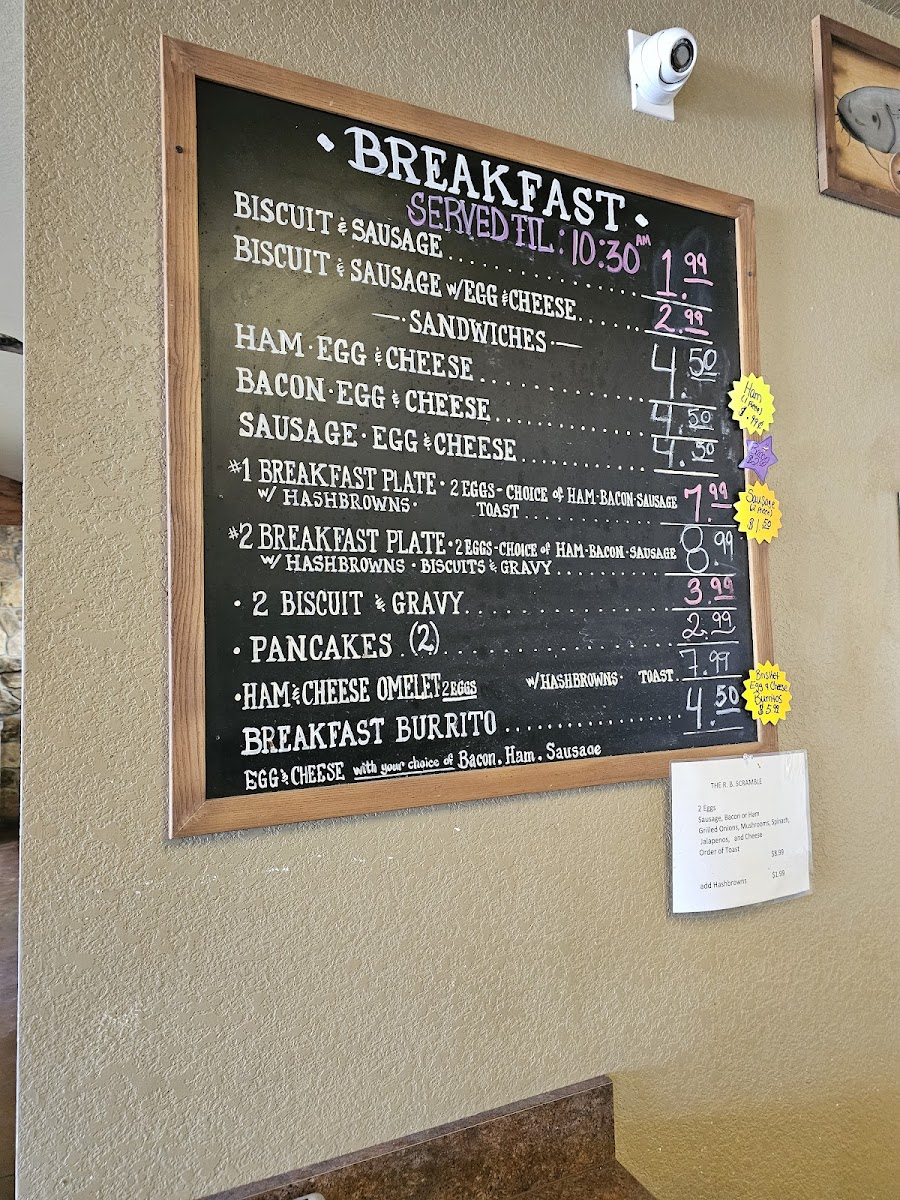 • BREAKFAST •
SERVED TIL: 10:30 AM
BISCUIT & SAUSAGE........................ 1.99
BISCUIT & SAUSAGE W/EGG & CHEESE....... 2.99
—• SANDWICHES •—
HAM • EGG & CHEESE.................... 4.50
BACON • EGG & CHEESE.................. 4.50
SAUSAGE • EGG & CHEESE................ 4.50
#1 BREAKFAST PLATE • 2 EGGS - CHOICE of HAM • BACON • SAUSAGE 7.99
W/ HASHBROWNS • TOAST....................
#2 BREAKFAST PLATE • 2 EGGS - CHOICE of HAM • BACON • SAUSAGE 8.99
W/ HASHBROWNS • BISCUITS & GRAVY...............
• 2 BISCUIT & GRAVY........................ 3.99
• PANCAKES (2)........................ 2.99
• HAM & CHEESE OMELET 2 EGGS W/HASHBROWNS • TOAST. 7.99
BREAKFAST BURRITO.................... 4.50
EGG & CHEESE with your choice of Bacon, Ham, Sausage
Ham
Sausage
$1.50
Brisket
Egg & Cheese
Burritos
$5.99
THE R. B. SCRAMBLE
2 Eggs
Sausage, Bacon or Ham
Grilled Onions, Mushrooms, Spinach,
Jalapenos, and Cheese
Order of Toast $8.99
add Hashbrowns $1.99